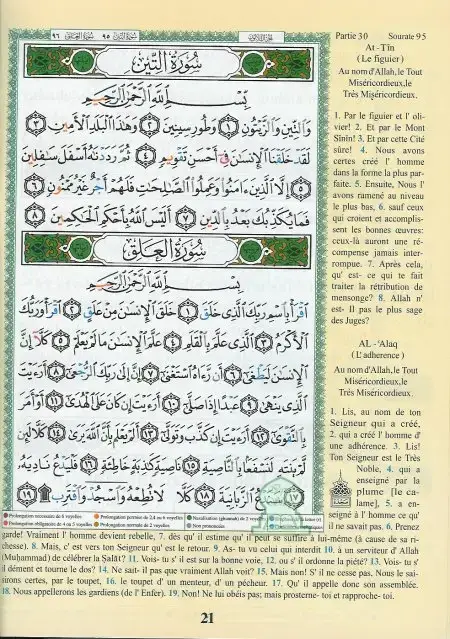 سورة العلق ٩٦ سورة التين ٩٥
سُورَةُ التِّينِ
بِسْمِ اللَّهِ الرَّحْمَٰنِ الرَّحِيمِ
وَالتِّينِ وَالزَّيْتُونِ ١ وَطُورِ سِينِينَ ٢ وَهَٰذَا الْبَلَدِ الْأَمِينِ ٣
لَقَدْ خَلَقْنَا الْإِنسَٰنَ فِي أَحْسَنِ تَقْوِيمٍ ٤ ثُمَّ رَدَدْنَٰهُ أَسْفَلَ سَٰفِلِينَ
٥ إِلَّا الَّذِينَ ءَامَنُوا وَعَمِلُوا الصَّٰلِحَٰتِ فَلَهُمْ أَجْرٌ غَيْرُ مَمْنُونٍ ٦
فَمَا يُكَذِّبُكَ بَعْدُ بِالدِّينِ ٧ أَلَيْسَ اللَّهُ بِأَحْكَمِ الْحَٰكِمِينَ ٨
سُورَةُ العَلَقِ
بِسْمِ اللَّهِ الرَّحْمَٰنِ الرَّحِيمِ
اقْرَأْ بِاسْمِ رَبِّكَ الَّذِي خَلَقَ ١ خَلَقَ الْإِنسَٰنَ مِنْ عَلَقٍ ٢ اقْرَأْ وَرَبُّكَ
الْأَكْرَمُ ٣ الَّذِي عَلَّمَ بِالْقَلَمِ ٤ عَلَّمَ الْإِنسَٰنَ مَا لَمْ يَعْلَمْ ٥ كَلَّا إِنَّ
الْإِنسَٰنَ لَيَطْغَىٰ ٦ أَن رَّءَاهُ اسْتَغْنَىٰ ٧ إِنَّ إِلَىٰ رَبِّكَ الرُّجْعَىٰ ٨ أَرَءَيْتَ
الَّذِي يَنْهَىٰ ٩ عَبْدًا إِذَا صَلَّىٰ ١٠ أَرَءَيْتَ إِن كَانَ عَلَى الْهُدَىٰ ١١ أَوْ أَمَرَ
بِالتَّقْوَىٰ ١٢ أَرَءَيْتَ إِن كَذَّبَ وَتَوَلَّىٰ ١٣ أَلَمْ يَعْلَم بِأَنَّ اللَّهَ يَرَىٰ ١٤ كَلَّا لَئِن
لَّمْ يَنتَهِ لَنَسْفَعًا بِالنَّاصِيَةِ ١٥ نَاصِيَةٍ كَٰذِبَةٍ خَاطِئَةٍ ١٦ فَلْيَدْعُ نَادِيَهُ
١٧ سَنَدْعُ الزَّبَانِيَةَ ١٨ كَلَّا لَا تُطِعْهُ وَاسْجُدْ وَاقْتَرِب ١٩
Partie 30 Sourate 95
At - Tîn
(Le figuier)
Au nom d'Allah,le Tout
Miséricordieux,le
Très Miséricordieux.
1. Par le figuier et l' oli-
vier! 2. Et par le Mont
Sînîn! 3. Et par cette Cité
sûre! 4. Nous avons
certes créé l' homme
dans la forme la plus par-
faite. 5. Ensuite, Nous l'
avons ramené au niveau
le plus bas, 6. sauf ceux
qui croient et accomplis-
sent les bonnes œuvres:
ceux-là auront une ré-
compense jamais inter-
rompue. 7. Après cela,
qu' est- ce qui te fait
traiter la rétribution de
mensonge? 8. Allah n'
est- Il pas le plus sage
des Juges?
AL - 'Alaq
(L'adherence )
Au nom d'Allah,le Tout
Miséricordieux,le
Très Miséricordieux.
1. Lis, au nom de ton
Seigneur qui a créé,
2. qui a créé l' homme d'
une adhérence. 3. Lis!
Ton Seigneur est le Très
Noble, 4. qui a
enseigné par la
plume [le ca-
lame], 5. a en-
seigné à l' homme ce qu'
il ne savait pas. 6. Prenez
garde! Vraiment l' homme devient rebelle, 7. dès qu' il estime qu' il peut se suffire à lui-même (à cause de sa ri-
chesse). 8. Mais, c' est vers ton Seigneur qu' est le retour. 9. As- tu vu celui qui interdit 10. à un serviteur d' Allah
(Muḥammad) de célébrer la Ṣalât? 11. Vois- tu s' il est sur la bonne voie, 12. ou s' il ordonne la piété? 13. Vois- tu s'
il dément et tourne le dos? 14. Ne sait- il pas que vraiment Allah voit? 15. Mais non! S' il ne cesse pas, Nous le sai-
sirons certes, par le toupet, 16. le toupet d' un menteur, d' un pécheur. 17. Qu' il appelle donc son assemblée.
18. Nous appellerons les gardiens (de l' Enfer). 19. Non! Ne lui obéis pas; mais prosterne- toi et rapproche- toi.
Prolongation nécessaire de 6 voyelles Prolongation permise de 2,4 ou 6 voyelles Nasalisation (ghunnah) de 2 voyelles
Prolongation obligatoire de 4 ou 5 voyelles Prolongation normale de 2 voyelles Non prononcées
21